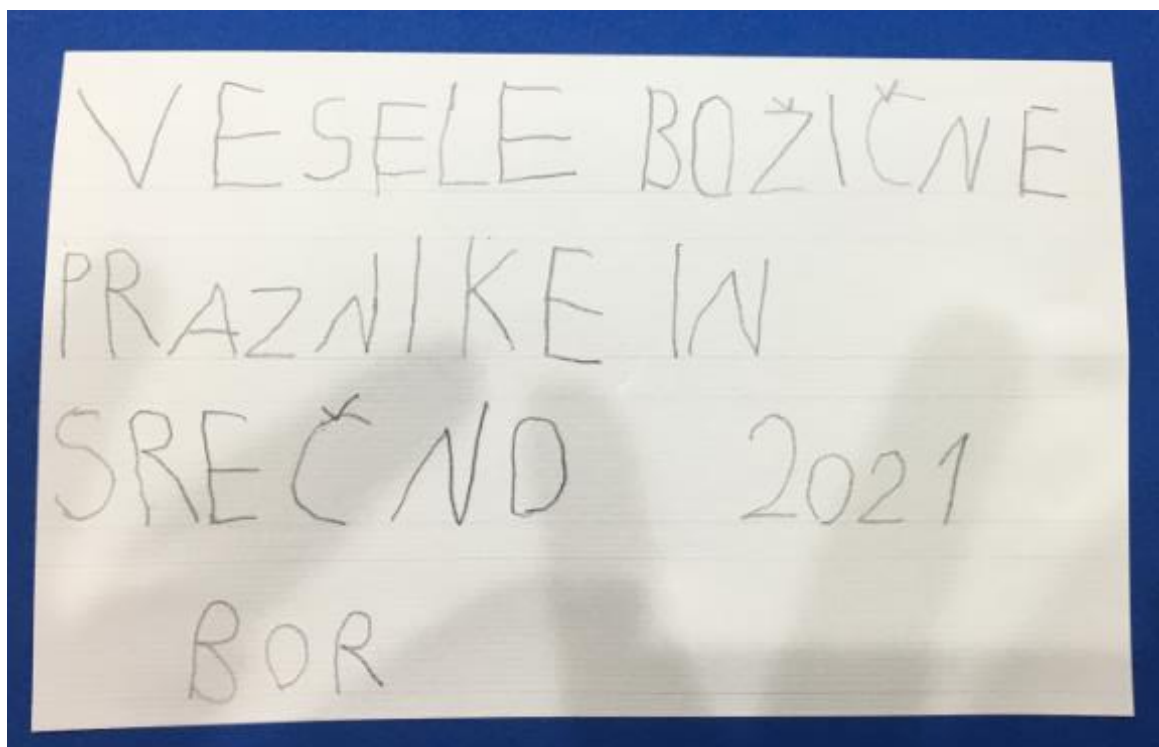 VESELE BOŽIČNE
PRAZNIKE IN
SREČNO 2021
BOR